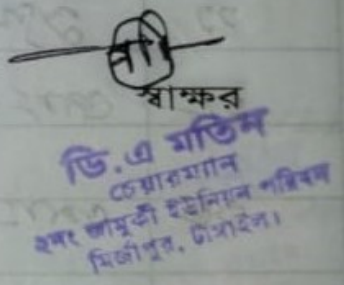 স্বাক্ষর
ডি.এ মতিন
চেয়ারম্যান
২নং জামুর্কী ইউনিয়ন পরিষদ
মির্জাপুর, টাংগাইল।